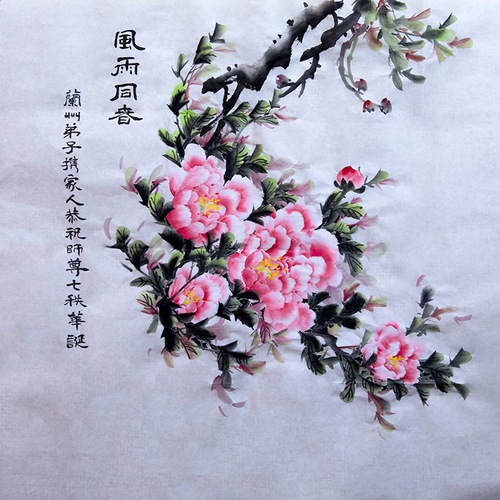 風雨同春
蘭州弟子攜家人恭祝師尊七秩華誕